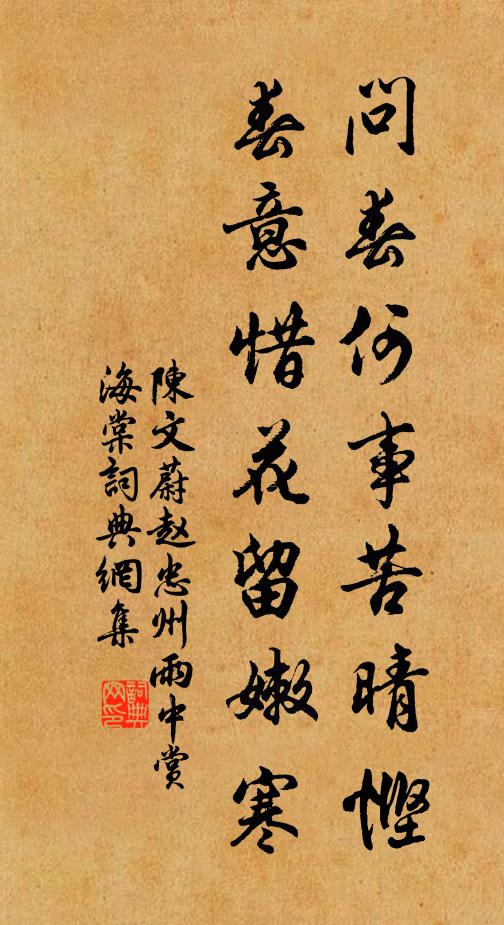 問春何事苦晴慳
春意惜花留嫩寒
陳文蔚赵忠州雨中赏
海棠詞典網集
詞典
网印